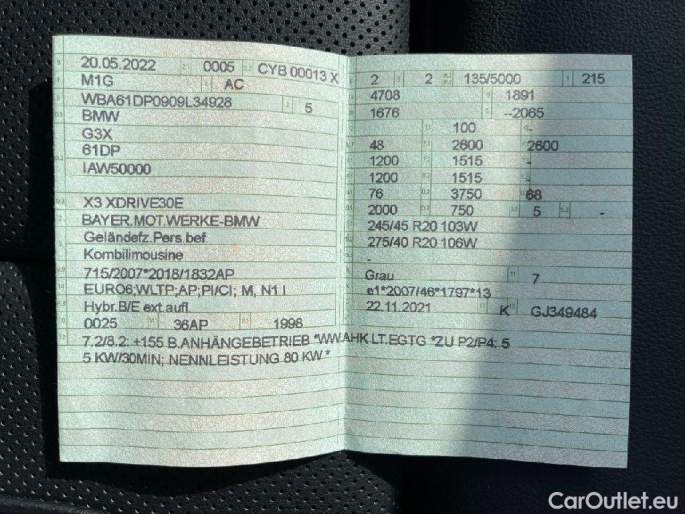 20.05.2022 0005 CYB 00013 X
M1G AC
WBA61DP0909L34928 5
BMW
G3X
61DP
IAW50000
X3 XDRIVE30E
BAYER.MOT.WERKE-BMW
Geländefz.Pers.bef.
Kombilimousine
715/2007*2018/1832AP
EURO6;WLTP;AP;PI/CI; M, N1 I
Hybr.B/E ext.aufl.
0025 36AP 1998
7.2/8.2: +155 B.ANHÄNGEBETRIEB *WW.AHK LT.EGTG *ZU P2/P4: 5
5 KW/30MIN; NENNLEISTUNG 80 KW *
2 2 135/5000 215
4708 1891
1676 --2065
100 -
48 2600 2600
1200 1515 -
1200 1515 -
76 3750 68
2000 750 5 -
245/45 R20 103W
275/40 R20 106W
-
Grau 7
e1*2007/46*1797*13
22.11.2021 K GJ349484
CarOutlet.eu